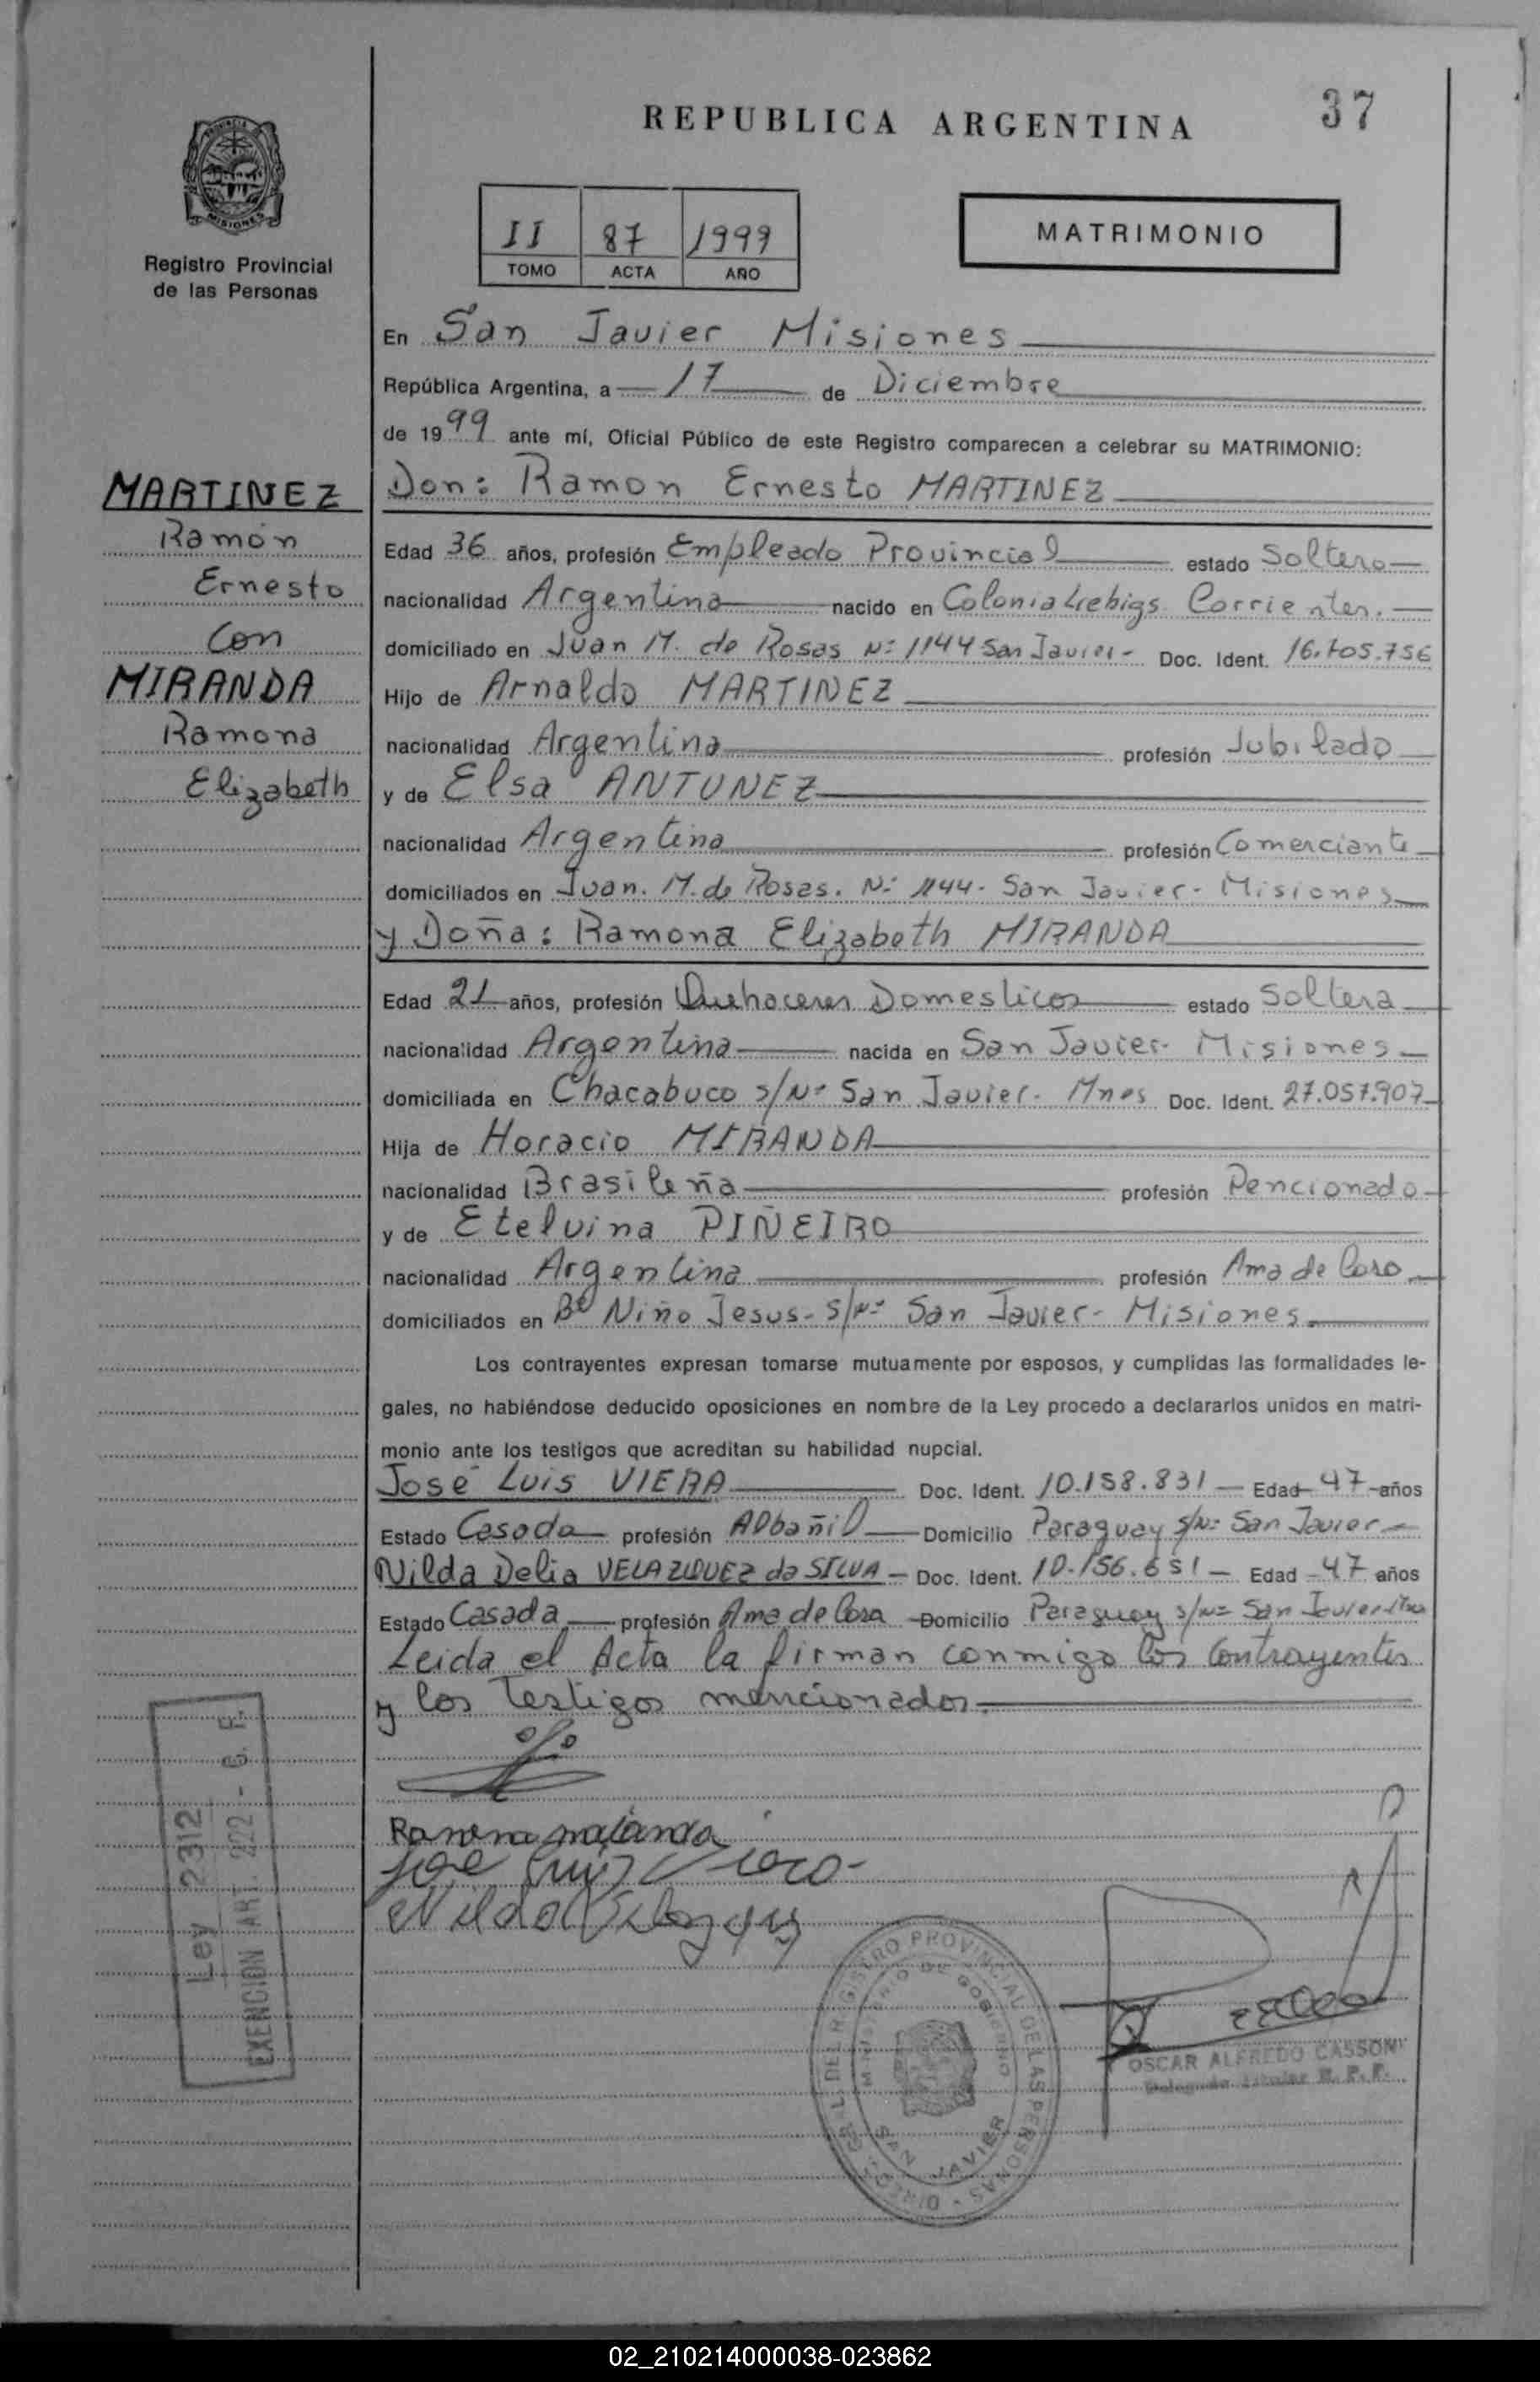 37
REPUBLICA ARGENTINA
PROVINCIA DE
MISIONES
Registro Provincial
de las Personas
II 87 1999
TOMO ACTA AÑO
MATRIMONIO
En San Javier Misiones
República Argentina, a 17 de Diciembre
de 1999 ante mí, Oficial Público de este Registro comparecen a celebrar su MATRIMONIO:
MARTINEZ
Ramón
Ernesto
Con
MIRANDA
Ramona
Elizabeth
Don: Ramon Ernesto MARTINEZ
Edad 36 años, profesión Empleado Provincial estado Soltero
nacionalidad Argentina nacido en Colonia Liebigs Corrientes.
domiciliado en Juan M. de Rosas Nº 1144 San Javier- Doc. Ident. 16.705.756
Hijo de Arnaldo MARTINEZ
nacionalidad Argentina profesión Jubilado
y de Elsa ANTUNEZ
nacionalidad Argentina profesión Comerciante
domiciliados en Juan. M. de Rosas. Nº 1144- San Javier- Misiones
y Doña: Ramona Elizabeth MIRANDA
Edad 21 años, profesión Quehaceres Domesticos estado Soltera
nacionalidad Argentina nacida en San Javier- Misiones
domiciliada en Chacabuco s/Nº San Javier- Mnes Doc. Ident. 27.057.907
Hija de Horacio MIRANDA
nacionalidad Brasileña profesión Pencionado
y de Etelvina PIÑEIRO
nacionalidad Argentina profesión Ama de Casa
domiciliados en Bº Niño Jesus- s/Nº San Javier- Misiones
Los contrayentes expresan tomarse mutuamente por esposos, y cumplidas las formalidades le-
gales, no habiéndose deducido oposiciones en nombre de la Ley procedo a declararlos unidos en matri-
monio ante los testigos que acreditan su habilidad nupcial.
José Luis VIERA Doc. Ident. 10.158.831 Edad 47 años
Estado Casado profesión Albañil Domicilio Paraguay s/Nº San Javier
Nilda Delia VELAZQUEZ da SILVA Doc. Ident. 10.156.651 Edad 47 años
Estado Casada profesión Ama de Casa Domicilio Paraguay s/Nº San Javier
Leida el Acta la firman conmigo los Contrayentes
y los Testigos mencionados.
Ramona Miranda
Jose Luis Viera
Nilda Velazquez
Ley 2312
EXENCION ART. 222 - G. F.
DIRECC. GRAL. DEL REGISTRO PROVINCIAL DE LAS PERSONAS
MINISTERIO DE GOBIERNO
SAN JAVIER
OSCAR ALFREDO CASSONI
Delegado Titular R. P. P.
02_210214000038-023862